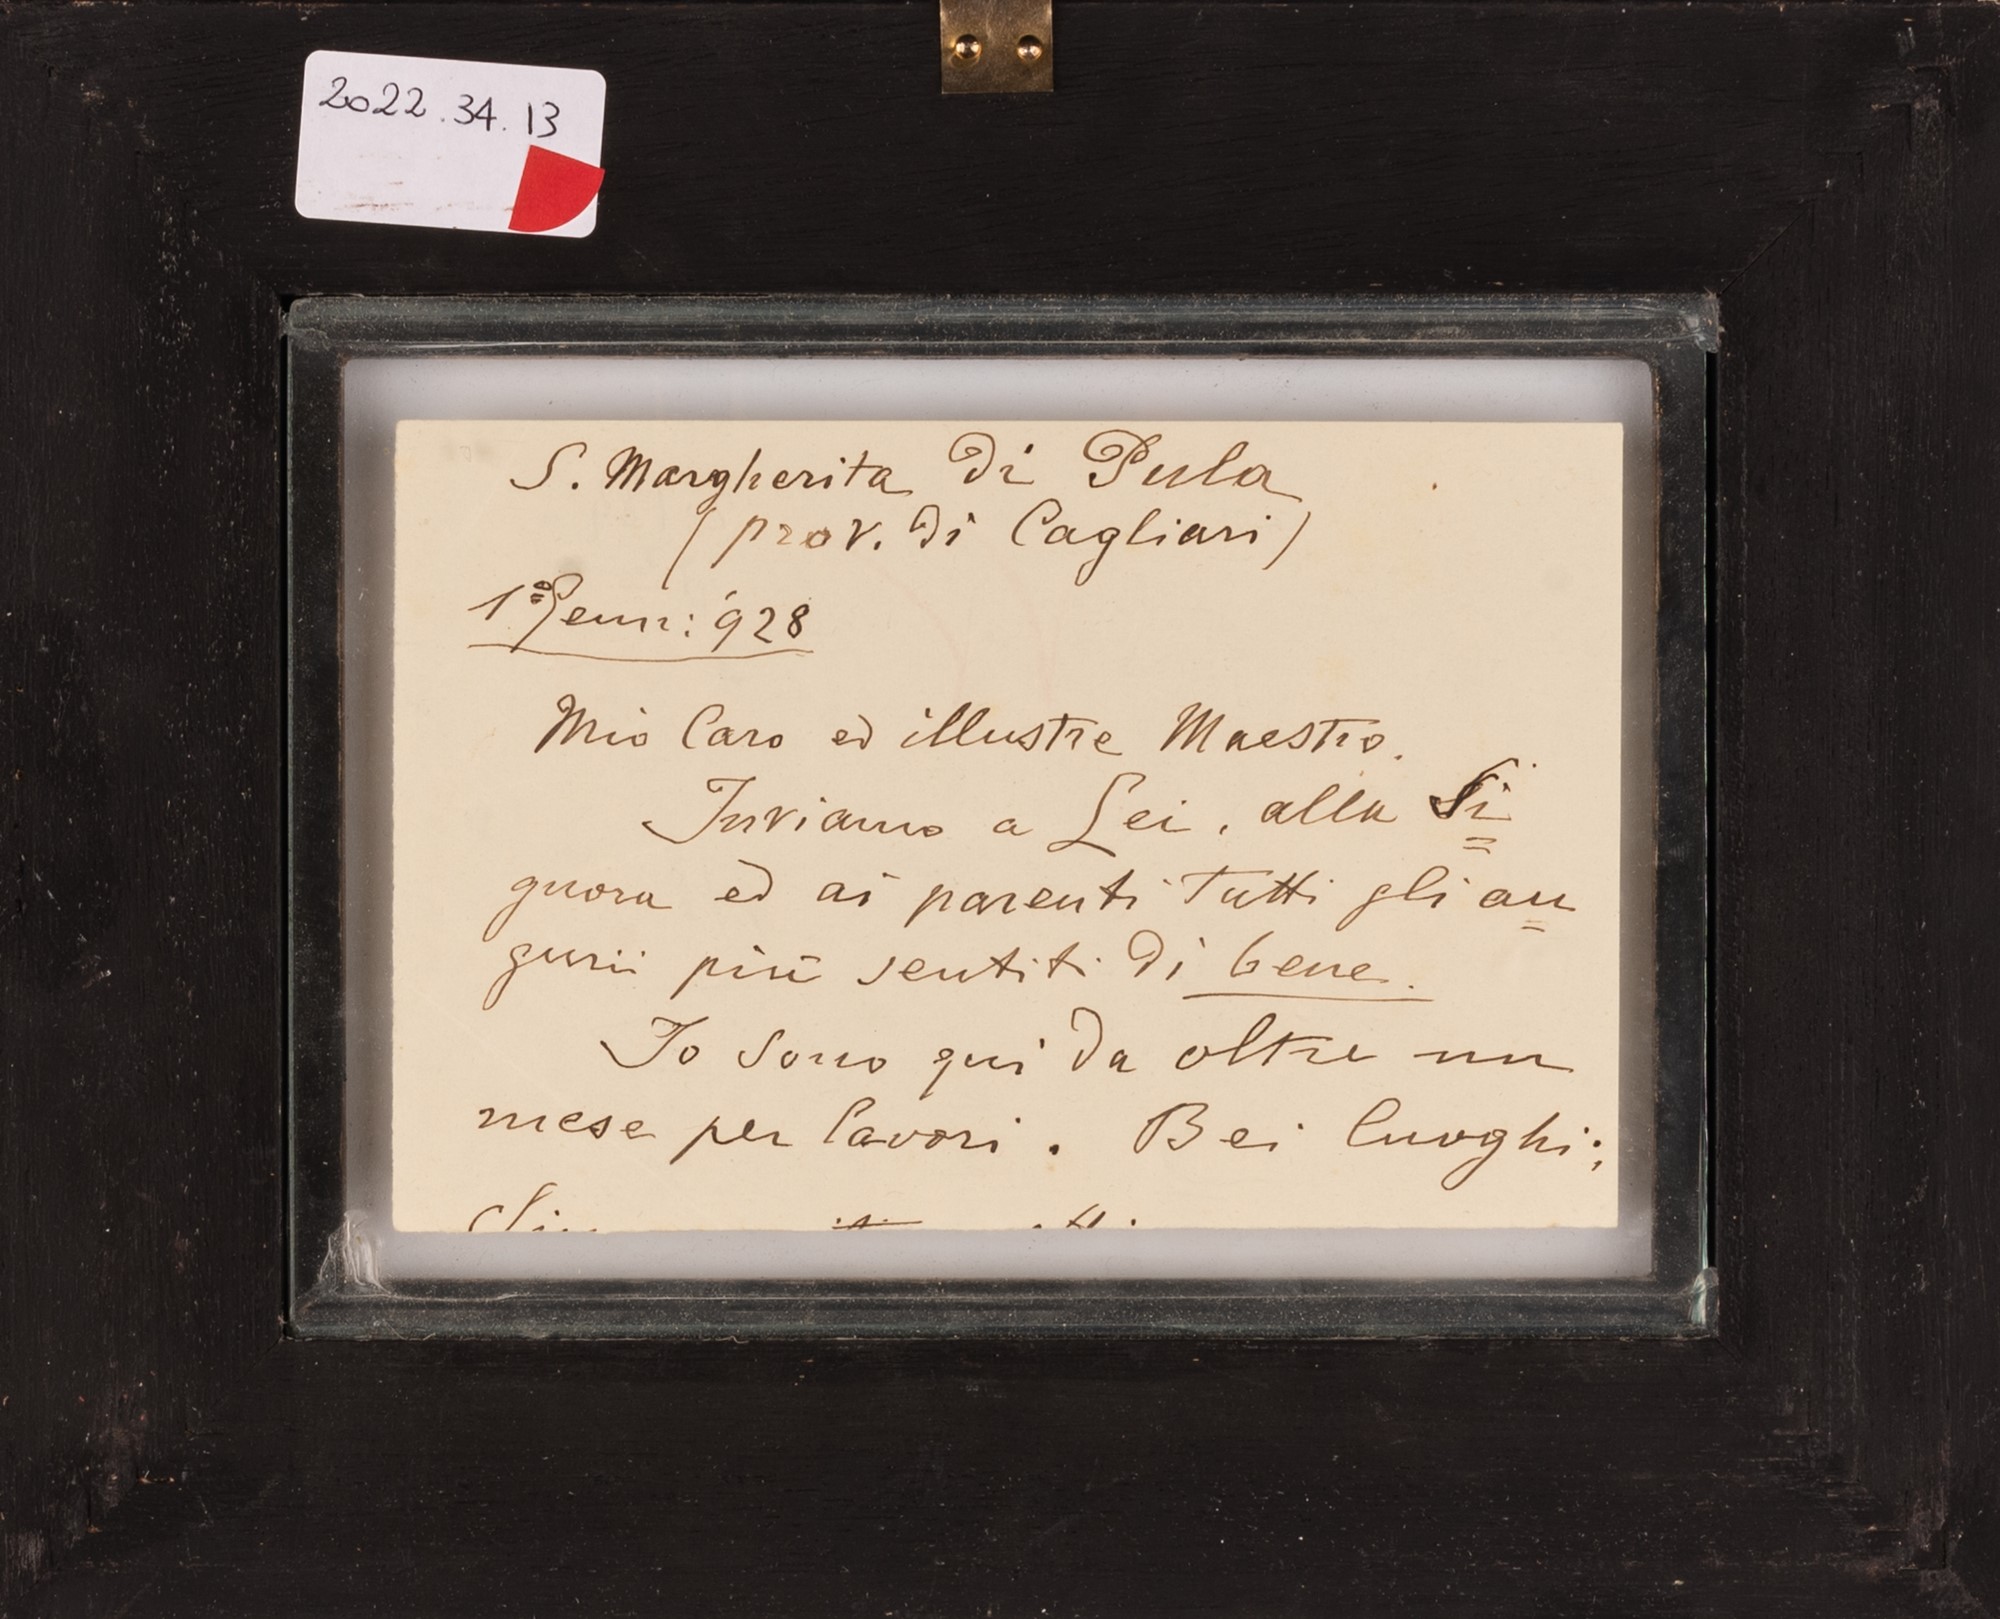 2022.34.13
S. Margherita di Pula
(prov. di Cagliari)
1º Genn: '928
Mio Caro ed illustre Maestro.
Inviamo a Lei, alla Si=
gnora ed ai parenti tutti gli au=
gurii più sentiti di bene.
Io sono qui da oltre un
mese per lavori. Bei luoghi;